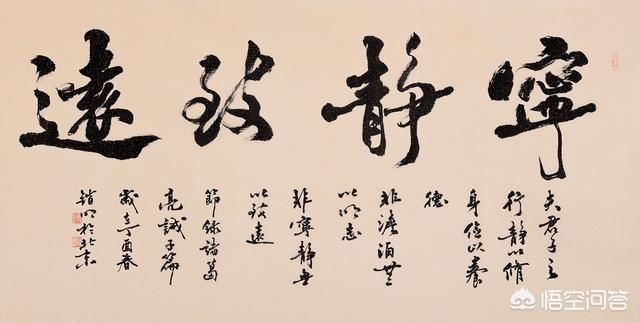 寧靜致遠
夫君子之
行靜以脩
身儉以養
德
非澹泊無
以明志
非寧靜無
以致遠
節錄諸葛
亮誡子篇
歲在丁酉春
明於北京
悟空问答